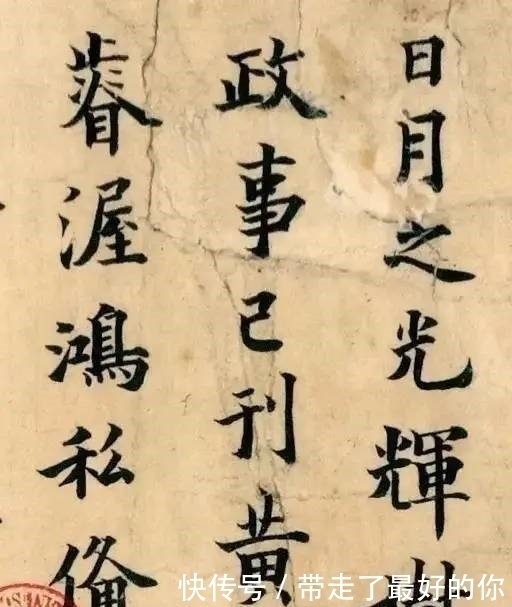 日月之光輝
政事已刊黄
睿渥鴻私俻
快传号/带走了最好的你